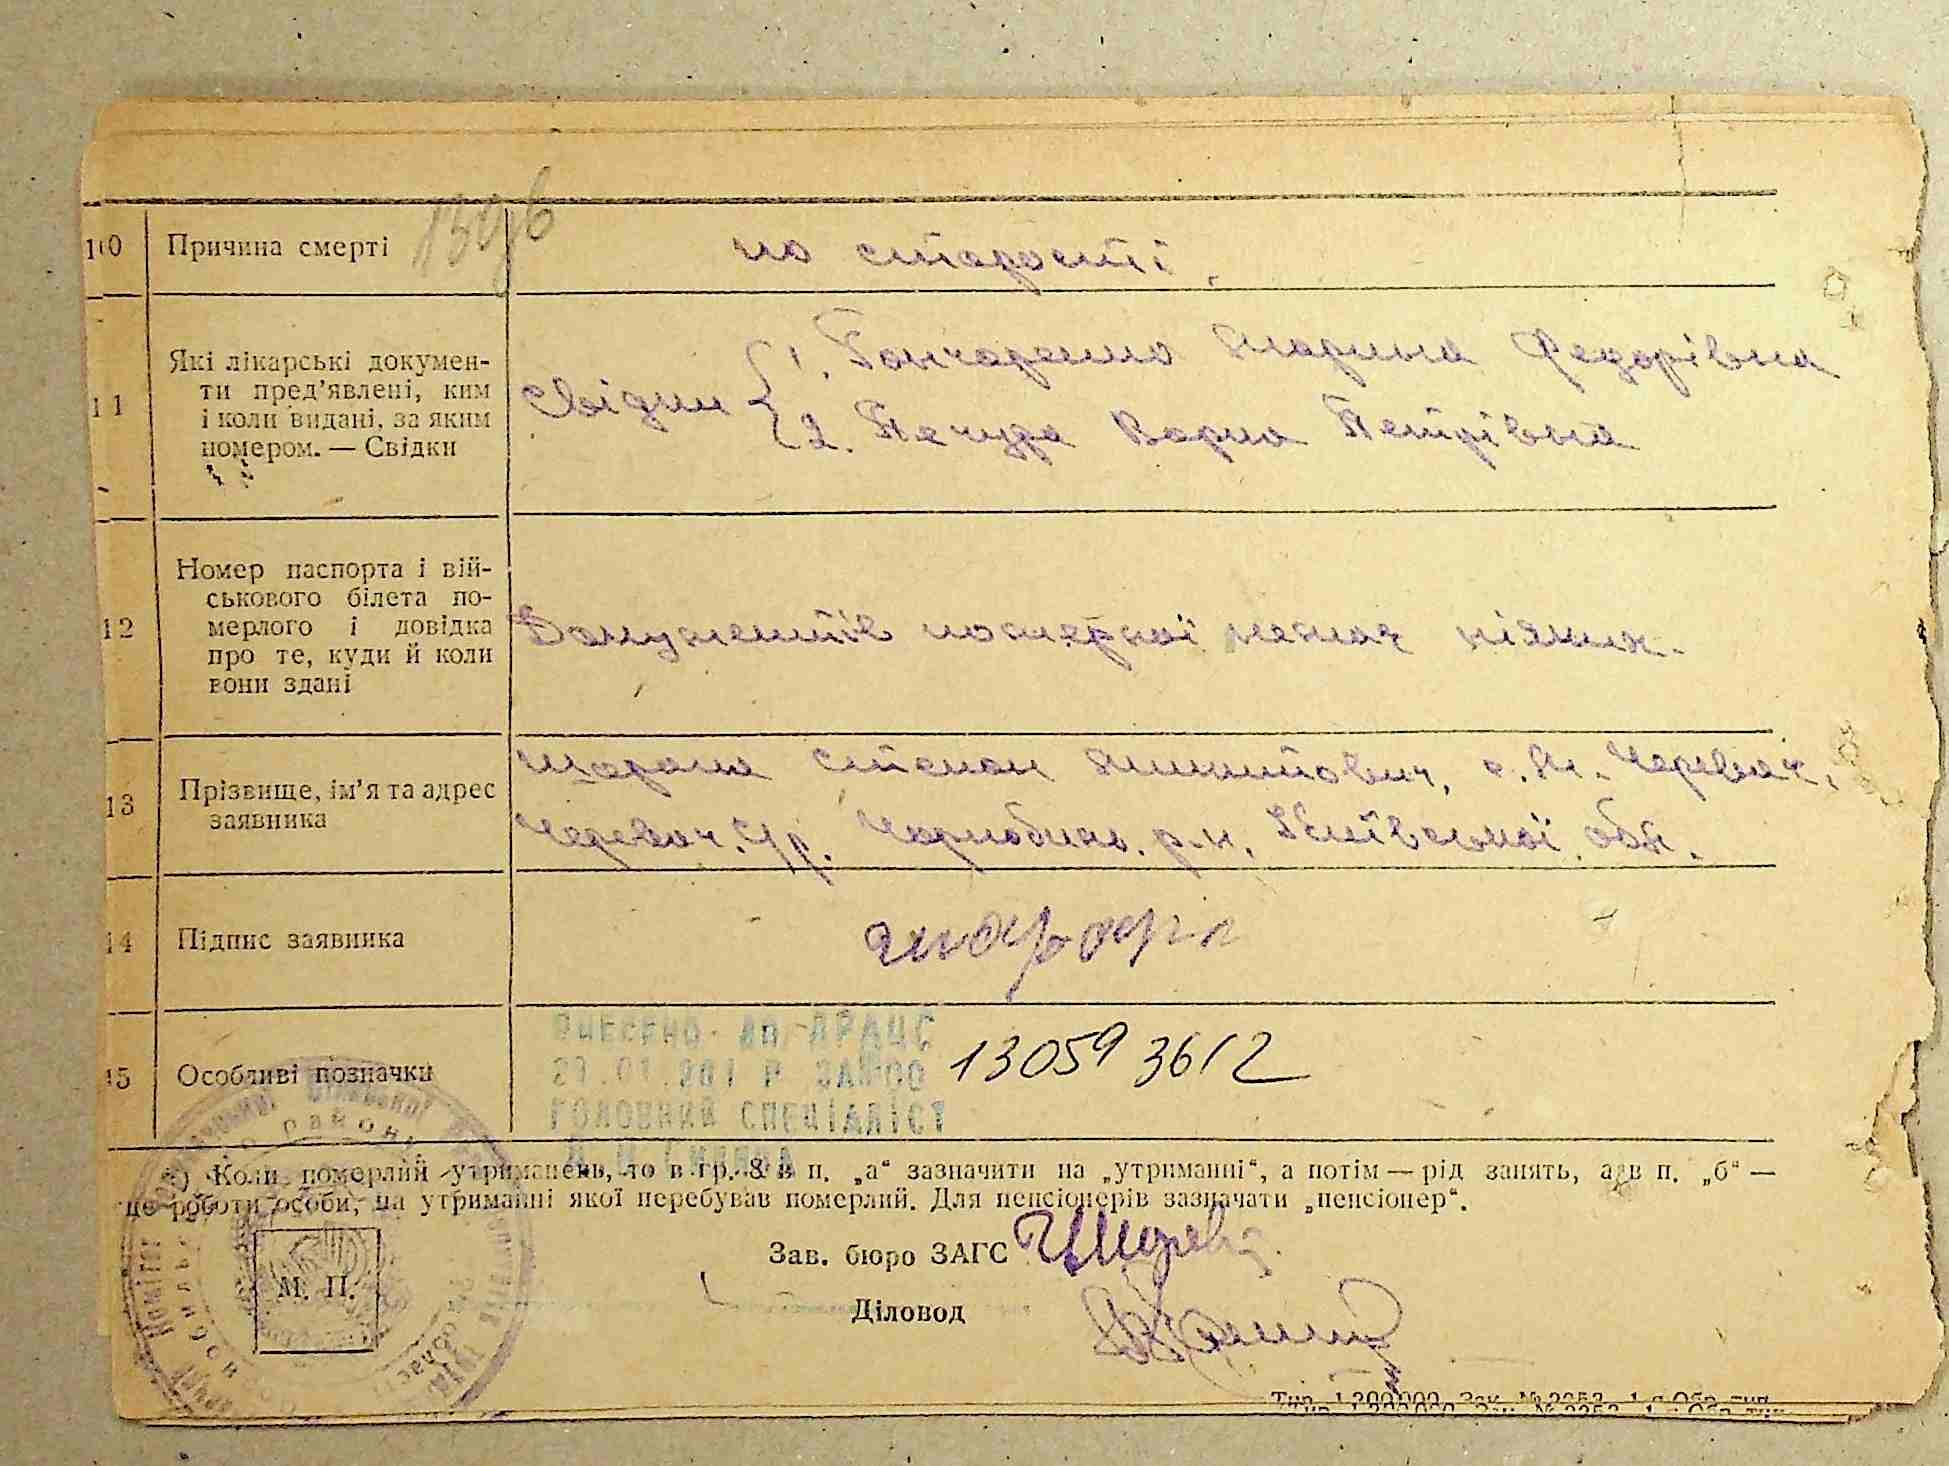 10 Причина смерті по старості.
11 Які лікарські докумен-
ти пред'явлені, ким
і коли видані, за яким
номером. — Свідки
Свідки { 1. Гончаренко Марина Федорівна
2. Печура Варка Петрівна
12 Номер паспорта і вій-
ськового білета по-
мерлого і довідка
про те, куди й коли
вони здані
Документів померлої немає ніяких.
13 Прізвище, ім'я та адрес
заявника
Степан с. Черевач,
Черевач. с/р. Чорнобильс. р-н, Київської обл.
14 Підпис заявника
15 Особливі позначки
ВНЕСЕНО ДО ДРАЦС
13059 3612
ГОЛОВНИЙ СПЕЦІАЛІСТ
*) Коли померлий утриманець, то в гр. 8 в п. „а“ зазначити на „утриманні“, а потім — рід занять, а в п. „б“ —
де роботи особи, на утриманні якої перебував померлий. Для пенсіонерів зазначати „пенсіонер“.
Зав. бюро ЗАГС
М. П.
Діловод